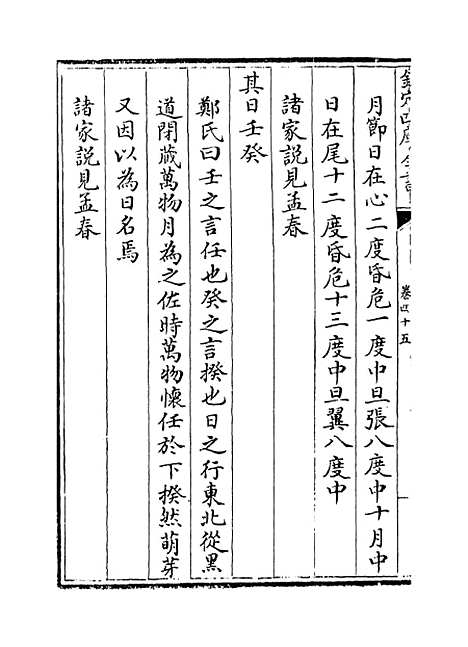 欽定四庫全書
卷四十五
月節日在心二度昏危一度中旦張八度中十月中
日在尾十二度昏危十三度中旦翼八度中
諸家說見孟春
其日壬癸
鄭氏曰壬之言任也癸之言揆也日之行東北從黑
道閉藏萬物月為之佐時萬物懷任於下揆然萌芽
又因以為日名焉
諸家說見孟春